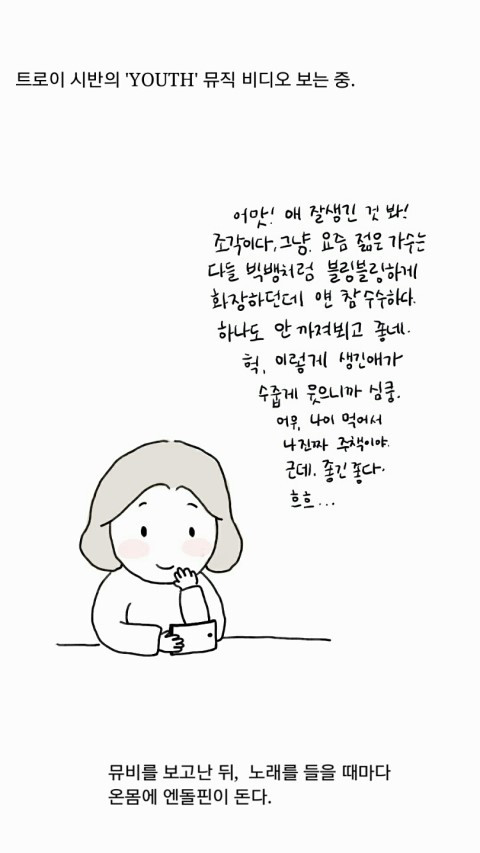 트로이 시반의 'YOUTH' 뮤직 비디오 보는 중.
어맛! 얘 잘생긴 것 봐!
조각이다, 그냥. 요즘 젊은 가수는
다들 빅뱅처럼 블링블링하게
화장하던데 얜 참 수수하다.
하나도 안 까져뵈고 좋네.
헉, 이렇게 생긴애가
수줍게 웃으니까 심쿵.
어우, 나이 먹어서
나 진짜 주책이야.
근데. 좋긴 좋다.
흐흐...
뮤비를 보고난 뒤, 노래를 들을 때마다
온몸에 엔돌핀이 돈다.